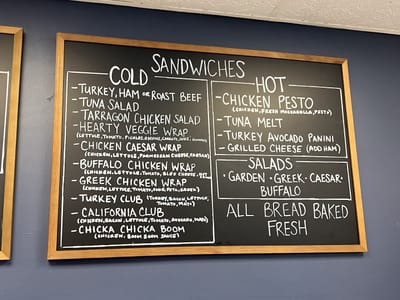 SANDWICHES
COLD
-TURKEY, HAM OR ROAST BEEF
-TUNA SALAD
-TARRAGON CHICKEN SALAD
-HEARTY VEGGIE WRAP
(LETTUCE, TOMATO, PICKLES,
-CHICKEN CAESAR WRAP
(CHICKEN, LETTUCE, PARMESAN CHEESE, CAESAR)
-BUFFALO CHICKEN WRAP
(CHICKEN, LETTUCE, TOMATO, BLEU CHEESE
-GREEK CHICKEN WRAP
(CHICKEN, LETTUCE, TOMATO, FETA, GREEK)
-TURKEY CLUB (TURKEY, BACON, LETTUCE, TOMATO, MAYO)
-CALIFORNIA CLUB
(CHICKEN, BACON, LETTUCE, TOMATO, AVOCADO, MAYO)
-CHICKA CHICKA BOOM
(CHICKEN, BOOM BOOM SAUCE)
HOT
-CHICKEN PESTO
(CHICKEN, FRESH MOZZARELLA, PESTO)
-TUNA MELT
-TURKEY AVOCADO PANINI
-GRILLED CHEESE (ADD HAM)
SALADS
· GARDEN · GREEK · CAESAR ·
BUFFALO
ALL BREAD BAKED
FRESH